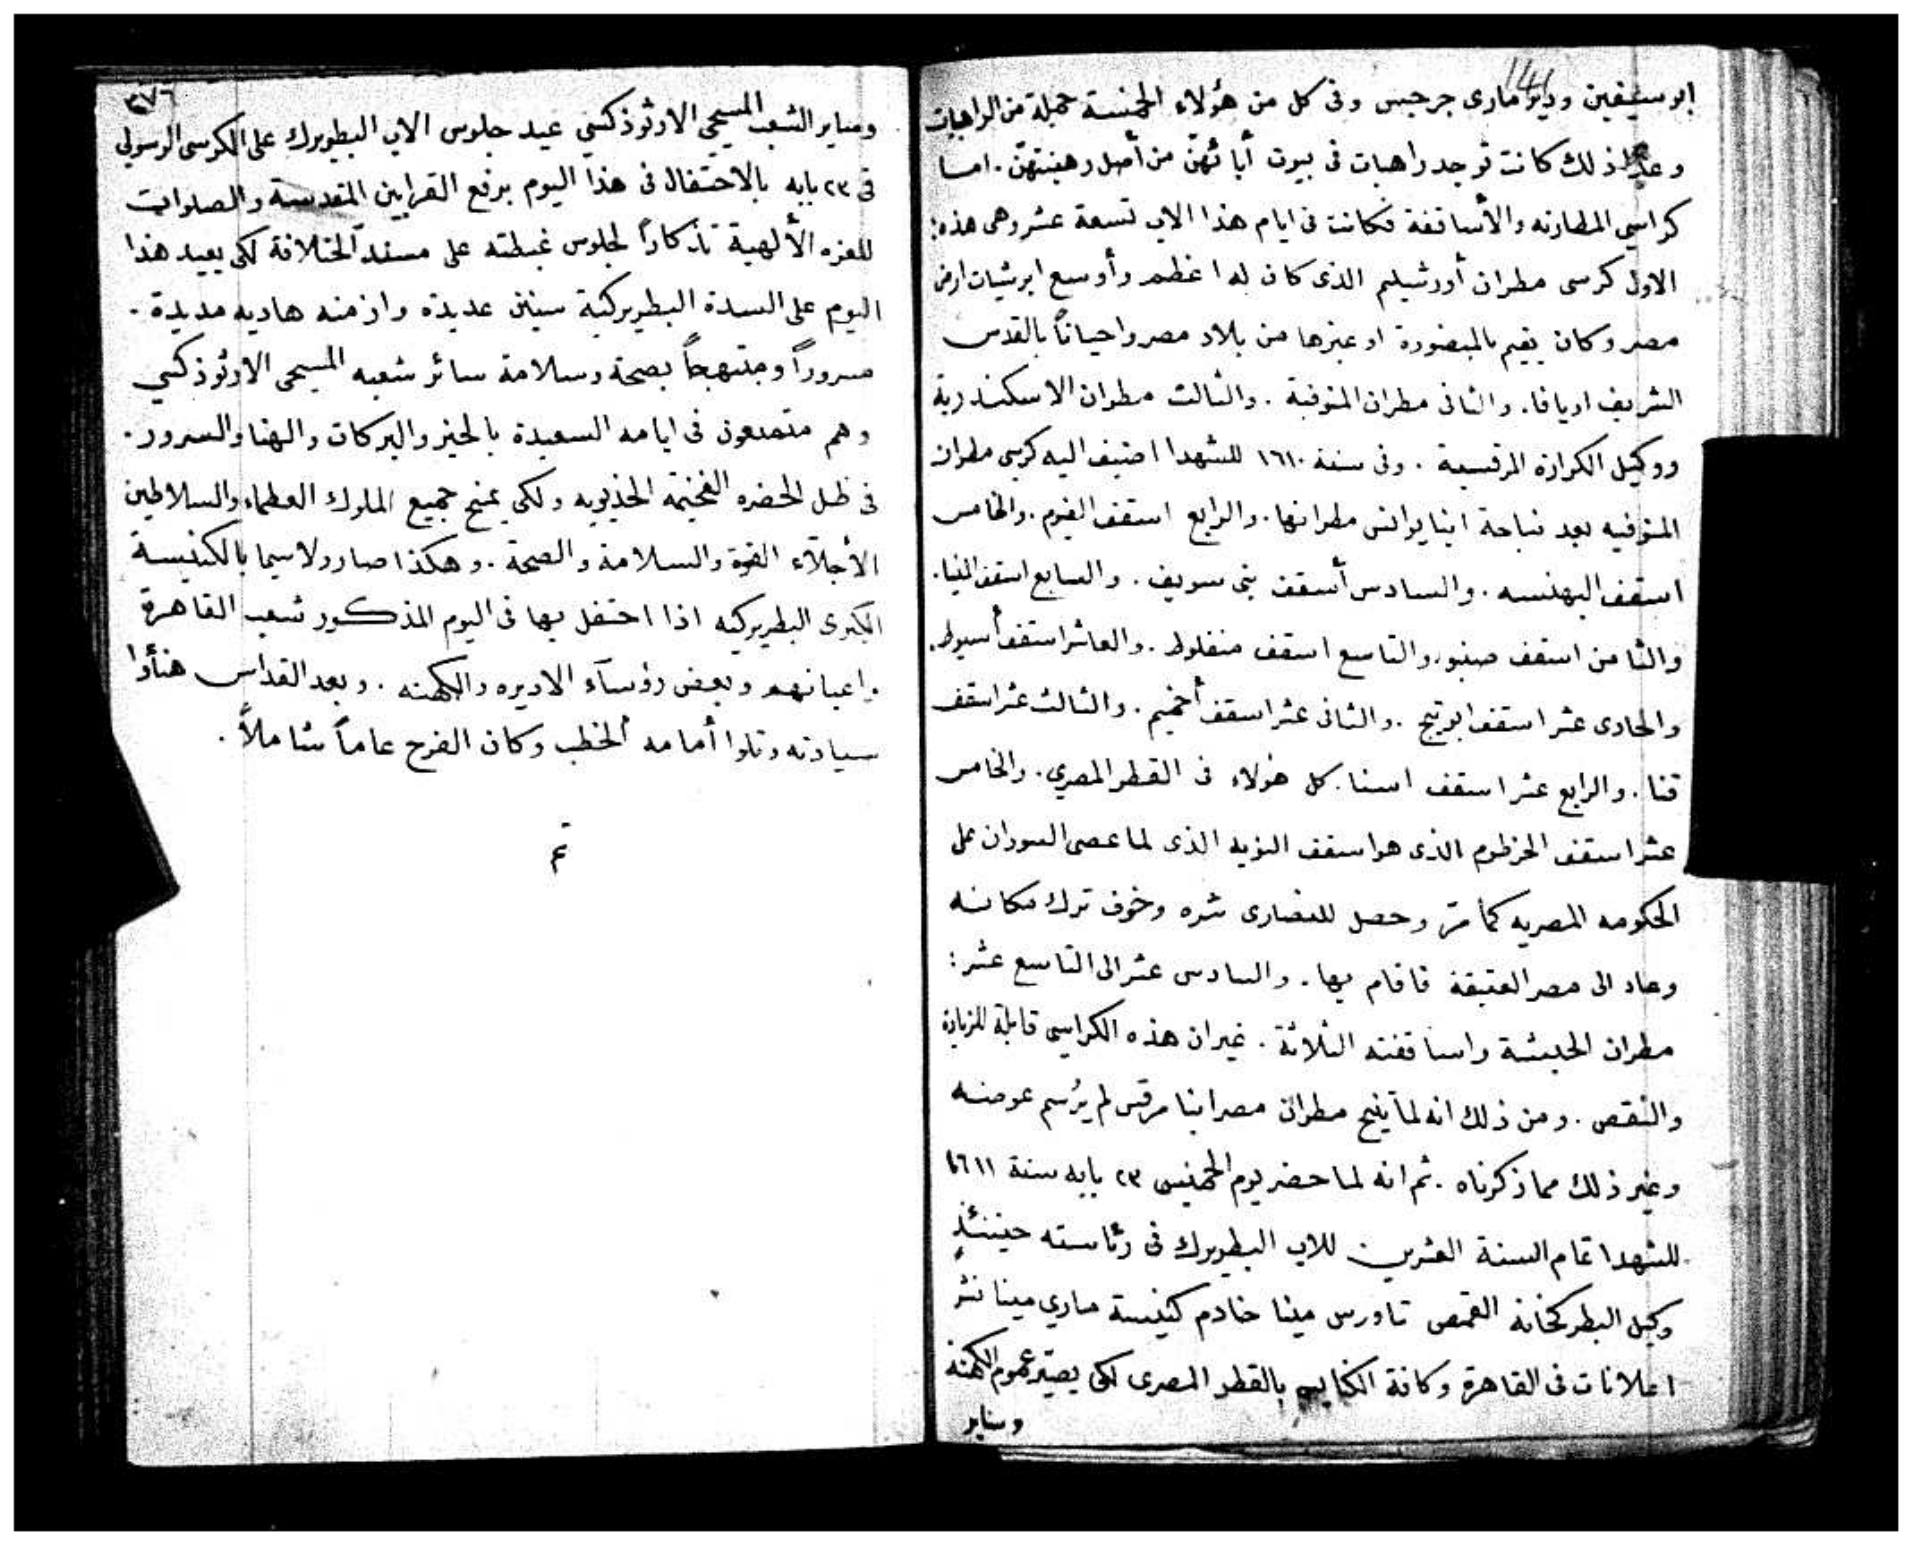 ابو سيفين ودير مارى جرجس وفى كل من هؤلاء الخمسة جملة من الراهبات
وعدا ذلك كانت توجد راهبات فى بيوت أبائهنّ من أصل رهبنتهنّ . اما
كراسي المطارنه والأساقفة فكانت فى ايام هذا الاب تسعة عشر وهى هذه:
الاول كرسى مطران أورشيلم الذى كان له اعظم وأوسع ابرشيات ارض
مصر وكان يقيم بالمنصورة او غيرها من بلاد مصر واحياناً بالقدس
الشريف او يافا. والثانى مطران المنوفية . والثالث مطران الاسكندرية
ووكيل الكرازة المرقسية . وفى سنة ١٦١٠ للشهدا اضيف اليه كرسى مطران
المنوفيه بعد نياحة انبا يوانس مطرانها. والرابع اسقف الفيوم. والخامس
اسقف البهنسه . والسادس أسقف بنى سويف . والسابع اسقف المنيا.
والثامن اسقف صنبو. والتاسع اسقف منفلوط . والعاشر اسقف أسيوط.
والحادى عشر اسقف ابو تيج . والثانى عشر اسقف أخميم . والثالث عشر اسقف
قنا . والرابع عشر اسقف اسنا. كل هؤلاء فى القطر المصري . والخامس
عشر اسقف الخرطوم الذى هو اسقف النوبه الذى لما عصى السودان على
الحكومه المصريه كما مرّ وحصل للنصارى شره وخوف ترك مكانه
وعاد الى مصر العتيقة فاقام بها . والسادس عشر الى التاسع عشر :
مطران الحبشة واساقفته الثلاثة . غير ان هذه الكراسى قابلة للزيادة
والنقص . ومن ذلك انه لما تنيح مطران مصر انبا مرقس لم يُرسم عوضه
وغير ذلك مما ذكرناه . ثم انه لما حضر يوم الخميس ٢٣ بابه سنة ١٦١١
للشهدا تمام السنة العشرين للاب البطريرك فى رئاسته حينئذٍ
وكيل البطركخانة القمص تاورس مينا خادم كنيسة ماري مينا نشر
اعلانات فى القاهرة وكافة الكنايس بالقطر المصرى لكى يصيّر عموم الكهنة
وساير
٣٧٦
وساير الشعب المسيحي الارثوذكسي عيد جلوس الاب البطريرك على الكرسى الرسولي
فى ٢٣ بابه بالاحتفال فى هذا اليوم برفع القرابين المقدسة والصلوات
للعزه الألهية تذكاراً لجلوس غبطته على مسند الخلافة لكى يعيد هذا
اليوم على السدة البطريركية سنين عديدة وازمنه هاديه مديدة .
مسروراً ومبتهجاً بصحة وسلامة سائر شعبه المسيحى الارثوذكسي
وهم متمتعون فى ايامه السعيدة بالخير والبركات والهنا والسرور .
فى ظل الحضره الفخيمة الخديويه ولكى يمنح جميع الملوك العظماء والسلاطين
الأجلاّء القوة والسلامة والصحة . وهكذا صار ولاسيما بالكنيسة
الكبرى البطريركيه اذا احتفل بها فى اليوم المذكور شعب القاهرة
واعيانهم وبعض رؤسآء الاديره والكهنه . وبعد القداس هنأوا
سيادته وتلوا أمامه الخطب وكان الفرح عاماً شاملاً .
تم